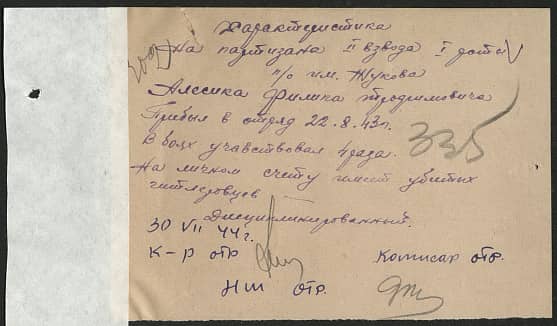 Характеристика
На партизана II взвода I роты
п/о им. Жукова
Филика Трофимовича
Прибыл в отряд 22.8.43г.
В боях учавствовал 4 раза.
335
На личном счету имеет убитых
гитлеровцев
Дисциплинированный.
30 VII 44 г.
К-р отр. Комисар отр.
НШ отр.